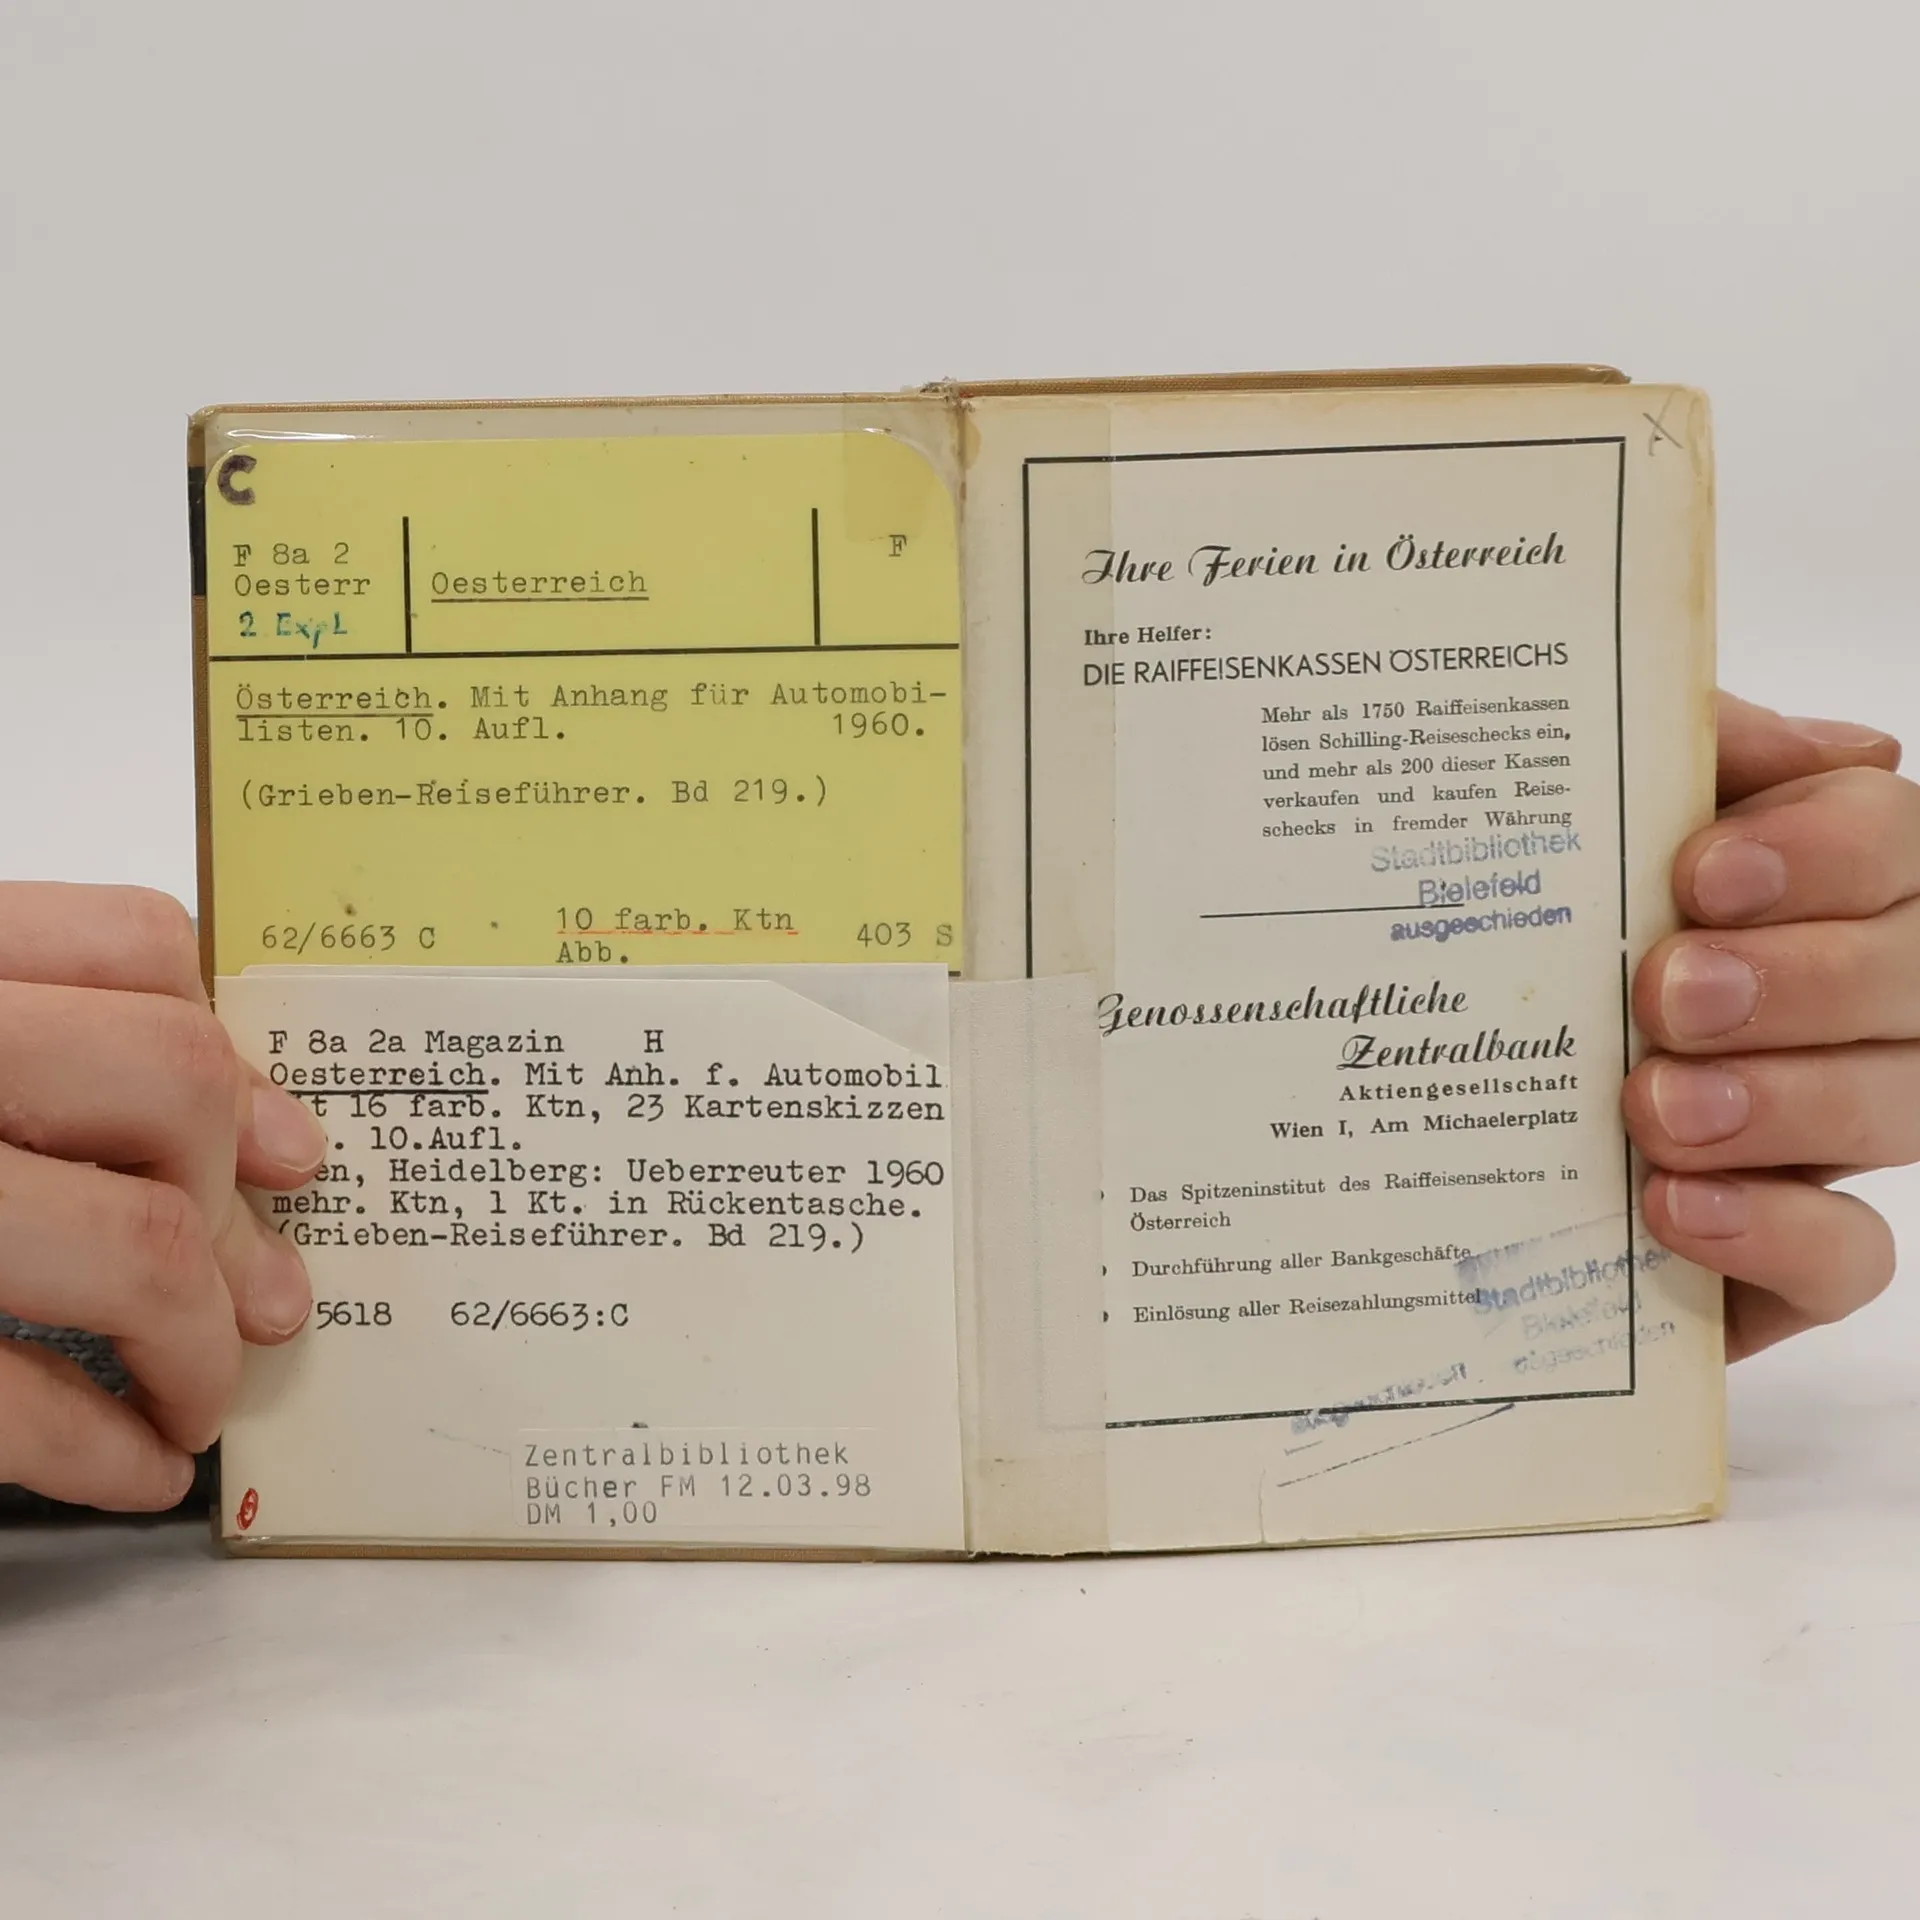 C
F 8a 2
Oesterr
2 Expl
Oesterreich
F
Österreich. Mit Anhang für Automobi-
listen. 10. Aufl. 1960.
(Grieben-Reiseführer. Bd 219.)
62/6663 C 10 farb. Ktn 403 S
Abb.
F 8a 2a Magazin H
Oesterreich. Mit Anh. f. Automobil
t 16 farb. Ktn, 23 Kartenskizzen
. 10.Aufl.
en, Heidelberg: Ueberreuter 1960
mehr. Ktn, 1 Kt. in Rückentasche.
(Grieben-Reiseführer. Bd 219.)
5618 62/6663:C
Zentralbibliothek
Bücher FM 12.03.98
DM 1,00
X
Ihre Ferien in Österreich
Ihre Helfer:
DIE RAIFFEISENKASSEN ÖSTERREICHS
Mehr als 1750 Raiffeisenkassen
lösen Schilling-Reiseschecks ein,
und mehr als 200 dieser Kassen
verkaufen und kaufen Reise-
schecks in fremder Währung
Stadtbibliothek
Bielefeld
ausgeschieden
Genossenschaftliche
Zentralbank
Aktiengesellschaft
Wien I, Am Michaelerplatz
Das Spitzeninstitut des Raiffeisensektors in
Österreich
Durchführung aller Bankgeschäfte
Einlösung aller Reisezahlungsmittel
Stadtbibliothek
Bielefeld
ausgeschieden